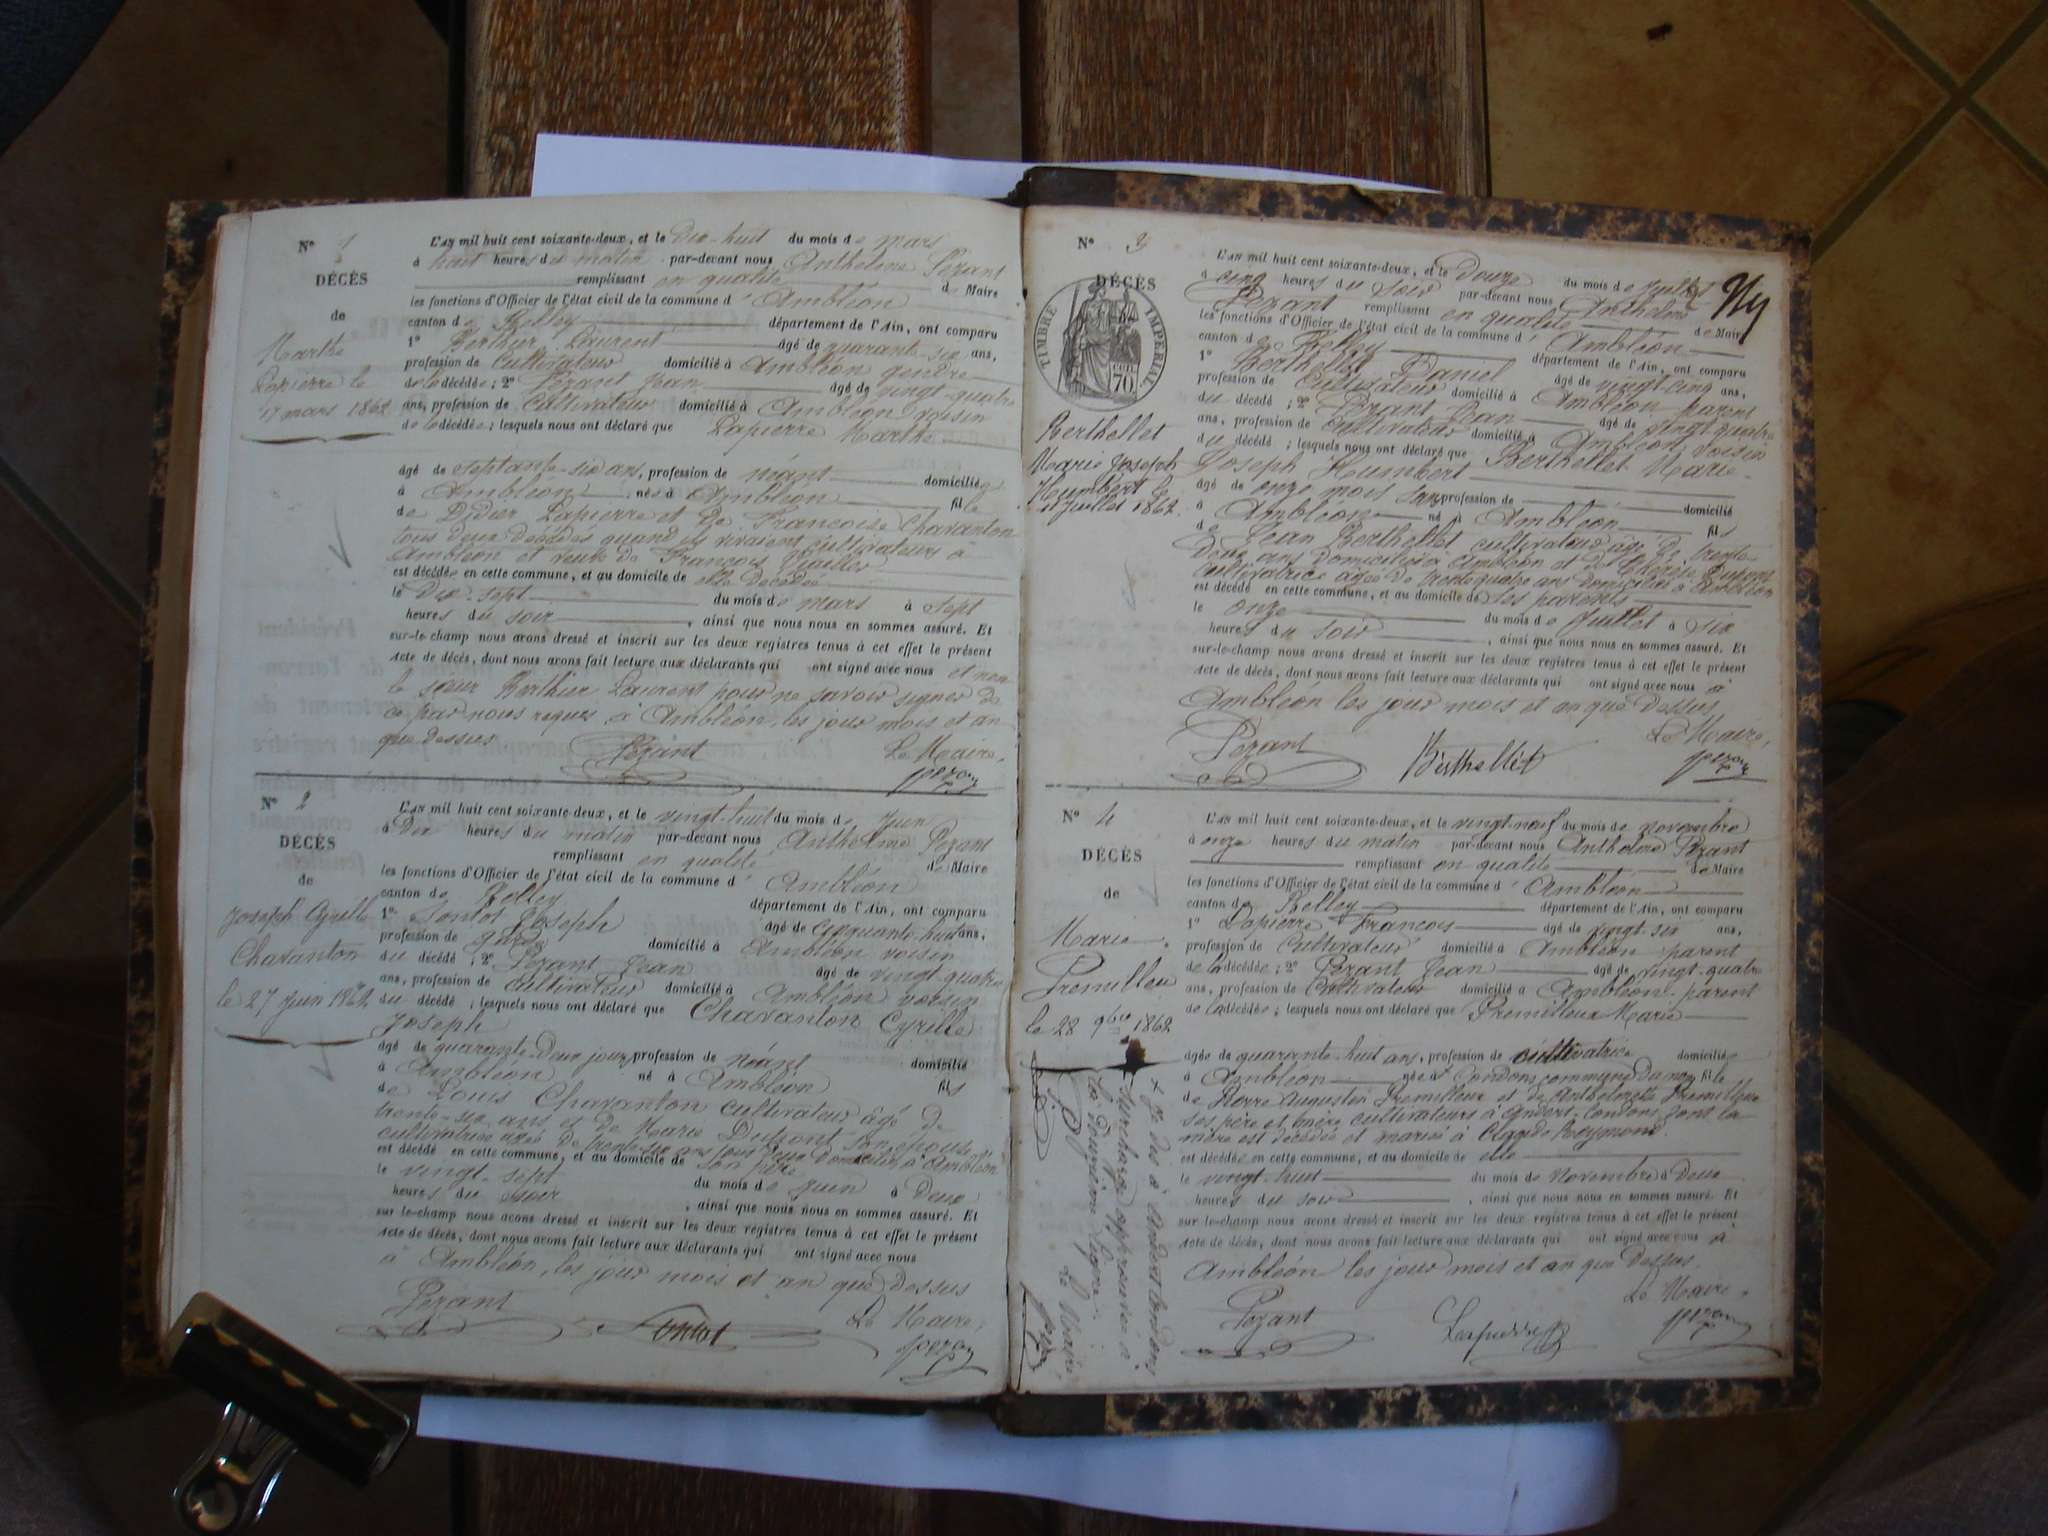 N° 1
DÉCÈS
de
Marthe
Lapierre le
17 mars 1862
L'AN mil huit cent soixante-deux, et le Dix-huit du mois de mars
à huit heures du matin par-devant nous Anthelme Pezant
remplissant en qualité de Maire
les fonctions d'Officier de l'état civil de la commune d' Ambléon
canton de Belley département de l'Ain, ont comparu
1° Berthier Laurent âgé de quarante-six ans,
profession de Cultivateur domicilié à Ambléon gendre
de la décédée; 2° Pezant Jean âgé de vingt-quatre
ans, profession de Cultivateur domicilié à Ambléon voisin
de la décédée; lesquels nous ont déclaré que Lapierre Marthe
âgé de septante-six ans, profession de néant domiciliée
à Ambléon née à Ambléon fille
de Didier Lapierre et de Françoise Chavanton
tous deux décédés quand ils vivaient cultivateurs à
Ambléon et veuve de François
est décédée en cette commune, et au domicile de elle décédée
le Dix-sept du mois de mars à sept
heures du soir, ainsi que nous nous en sommes assuré. Et
sur-le-champ nous avons dressé et inscrit sur les deux registres tenus à cet effet le présent
acte de décès, dont nous avons fait lecture aux déclarants qui ont signé avec nous et non
le sieur Berthier Laurent pour ne savoir signer de
ce par nous requis à Ambléon, les jour mois et an
que dessus
Pezant Le Maire,
Pezant
N° 2
DÉCÈS
de
Joseph Cyrille
Chavanton
le 27 juin 1862
L'AN mil huit cent soixante-deux, et le vingt-huit du mois de Juin
à Dix heures du matin par-devant nous Anthelme Pezant
remplissant en qualité de Maire
les fonctions d'Officier de l'état civil de la commune d' Ambléon
canton de Belley département de l'Ain, ont comparu
1° Joseph âgé de Cinquante-huit ans,
profession de garde domicilié à Ambléon voisin
du décédé; 2° Pezant Jean âgé de vingt-quatre
ans, profession de Cultivateur domicilié à Ambléon voisin
du décédé; lesquels nous ont déclaré que Chavanton Cyrille
Joseph
âgé de quarante-Deux jours, profession de néant domicilié
à Ambléon né à Ambléon fils
de Louis Chavanton cultivateur âgé de
trente-six ans et de Marie Dupont son épouse
cultivatrice agée de trente-six ans tous deux domiciliés à Ambléon
est décédé en cette commune, et au domicile de son père
le vingt-sept du mois de juin à Deux
heures du soir, ainsi que nous nous en sommes assuré. Et
sur-le-champ nous avons dressé et inscrit sur les deux registres tenus à cet effet le présent
acte de décès, dont nous avons fait lecture aux déclarants qui ont signé avec nous
à Ambléon, les jour mois et an que Dessus
Pezant Le Maire,
Pezant
N° 3
DÉCÈS
TIMBRE IMPÉRIAL
70
Berthellet
Marie Joseph
Humbert le
11 Juillet 1862
L'AN mil huit cent soixante-deux, et le Douze du mois de juillet
à cinq heures du soir par-devant nous Anthelme
Pezant remplissant en qualité de Maire
les fonctions d'Officier de l'état civil de la commune d' Ambléon
canton de Belley département de l'Ain, ont comparu
1° Berthellet Daniel âgé de vingt-cinq ans,
profession de Cultivateur domicilié à Ambléon parent
du décédé; 2° Pezant Jean âgé de vingt-quatre
ans, profession de Cultivateur domicilié à Ambléon voisin
du décédé; lesquels nous ont déclaré que Berthellet Marie
Joseph Humbert
âgé de onze mois sans profession de domicilié
à Ambléon né à Ambléon fils
de Jean Berthellet cultivateur âgé de trente-
deux ans domicilié à Ambléon et de Dupont
cultivatrice âgée de trente quatre ans domiciliée à Ambléon
est décédé en cette commune, et au domicile de ses parents
le onze du mois de Juillet à six
heures du soir, ainsi que nous nous en sommes assuré. Et
sur-le-champ nous avons dressé et inscrit sur les deux registres tenus à cet effet le présent
acte de décès, dont nous avons fait lecture aux déclarants qui ont signé avec nous à
Ambléon les jour mois et an que Dessus
Le Maire,
Pezant Berthellet Pezant
N° 4
DÉCÈS
de
Marie
Premilleu
le 28 9bre 1862
L'AN mil huit cent soixante-deux, et le vingt-neuf du mois de novembre
à onze heures du matin par-devant nous Anthelme Pezant
remplissant en qualité de Maire
les fonctions d'Officier de l'état civil de la commune d' Ambléon
canton de Belley département de l'Ain, ont comparu
1° Lapierre François âgé de vingt-six ans,
profession de Cultivateur domicilié à Ambléon parent
de la décédée; 2° Pezant Jean âgé de vingt-quatre
ans, profession de Cultivateur domicilié à Ambléon parent
de la décédée; lesquels nous ont déclaré que Premilleux Marie
âgée de quarante-huit ans, profession de cultivatrice domiciliée
à Ambléon née à Condon commune du fille
de Pierre Augustin Premilleux et de Premilleux
ses père et mère cultivateurs à Andert-Condon, dont la
mère est décédée et mariée à Reymond.
est décédée en cette commune, et au domicile de elle
le vingt-huit du mois de Novembre à Deux
heures du soir, ainsi que nous nous en sommes assuré. Et
sur-le-champ nous avons dressé et inscrit sur les deux registres tenus à cet effet le présent
acte de décès, dont nous avons fait lecture aux déclarants qui ont signé avec nous à
Ambléon les jour mois et an que Dessus.
Le Maire,
Pezant Lapierre Pezant
Andert Condon,
Surcharge approuvée à
la douzième ligne.
Le Maire
Pezant